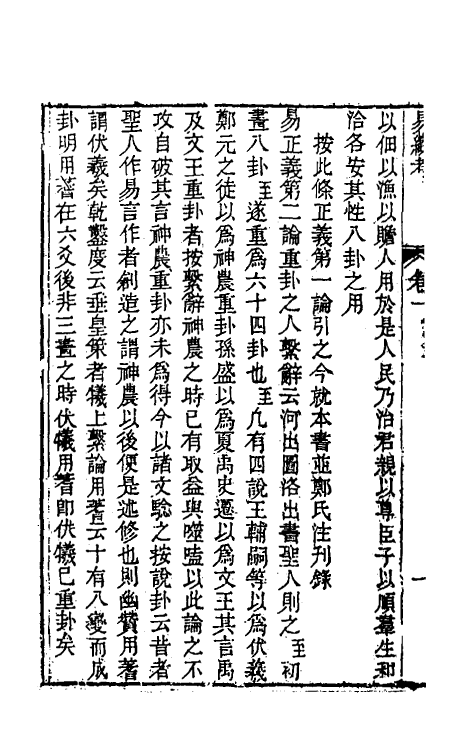 易緯考
卷一
一
以佃以漁以贍人用於是人民乃治君親以尊臣子以順羣生和
洽各安其性八卦之用
按此條正義第一論引之今就本書並鄭氏注刊錄
易正義第二論重卦之人繫辭云河出圖洛出書聖人則之至初
畫八卦至遂重爲六十四卦也至凢有四說王輔嗣等以爲伏羲
鄭元之徒以爲神農重卦孫盛以爲夏禹史遷以爲文王其言禹
及文王重卦者按繫辭神農之時已有取益與噬嗑以此論之不
攻自破其言神農重卦亦未爲得今以諸文驗之按說卦云昔者
聖人作易言作者創造之謂神農以後便是述修也則幽贊用蓍
謂伏羲矣乾鑿度云垂皇策者犧上繫論用蓍云十有八變而成
卦明用蓍在六爻後非三畫之時伏犧用蓍卽伏犧已重卦矣